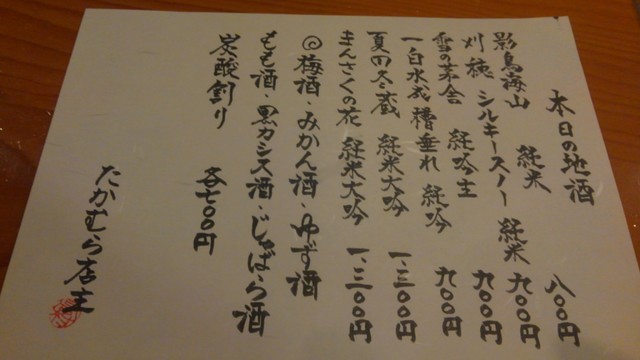 本日の地酒
影鳥海山 純米 八〇〇円
刈穂 シルキースノー 純米 九〇〇円
雪の茅舎 純吟生 九〇〇円
一白水成 槽垂れ 純吟 九〇〇円
夏田冬蔵 純米大吟 一、三〇〇円
まんさくの花 純米大吟 一、三〇〇円
◎梅酒・みかん酒・ゆず酒
もも酒・黒カシス酒・じゃばら酒
炭酸割り 各七〇〇円
たかむら店主